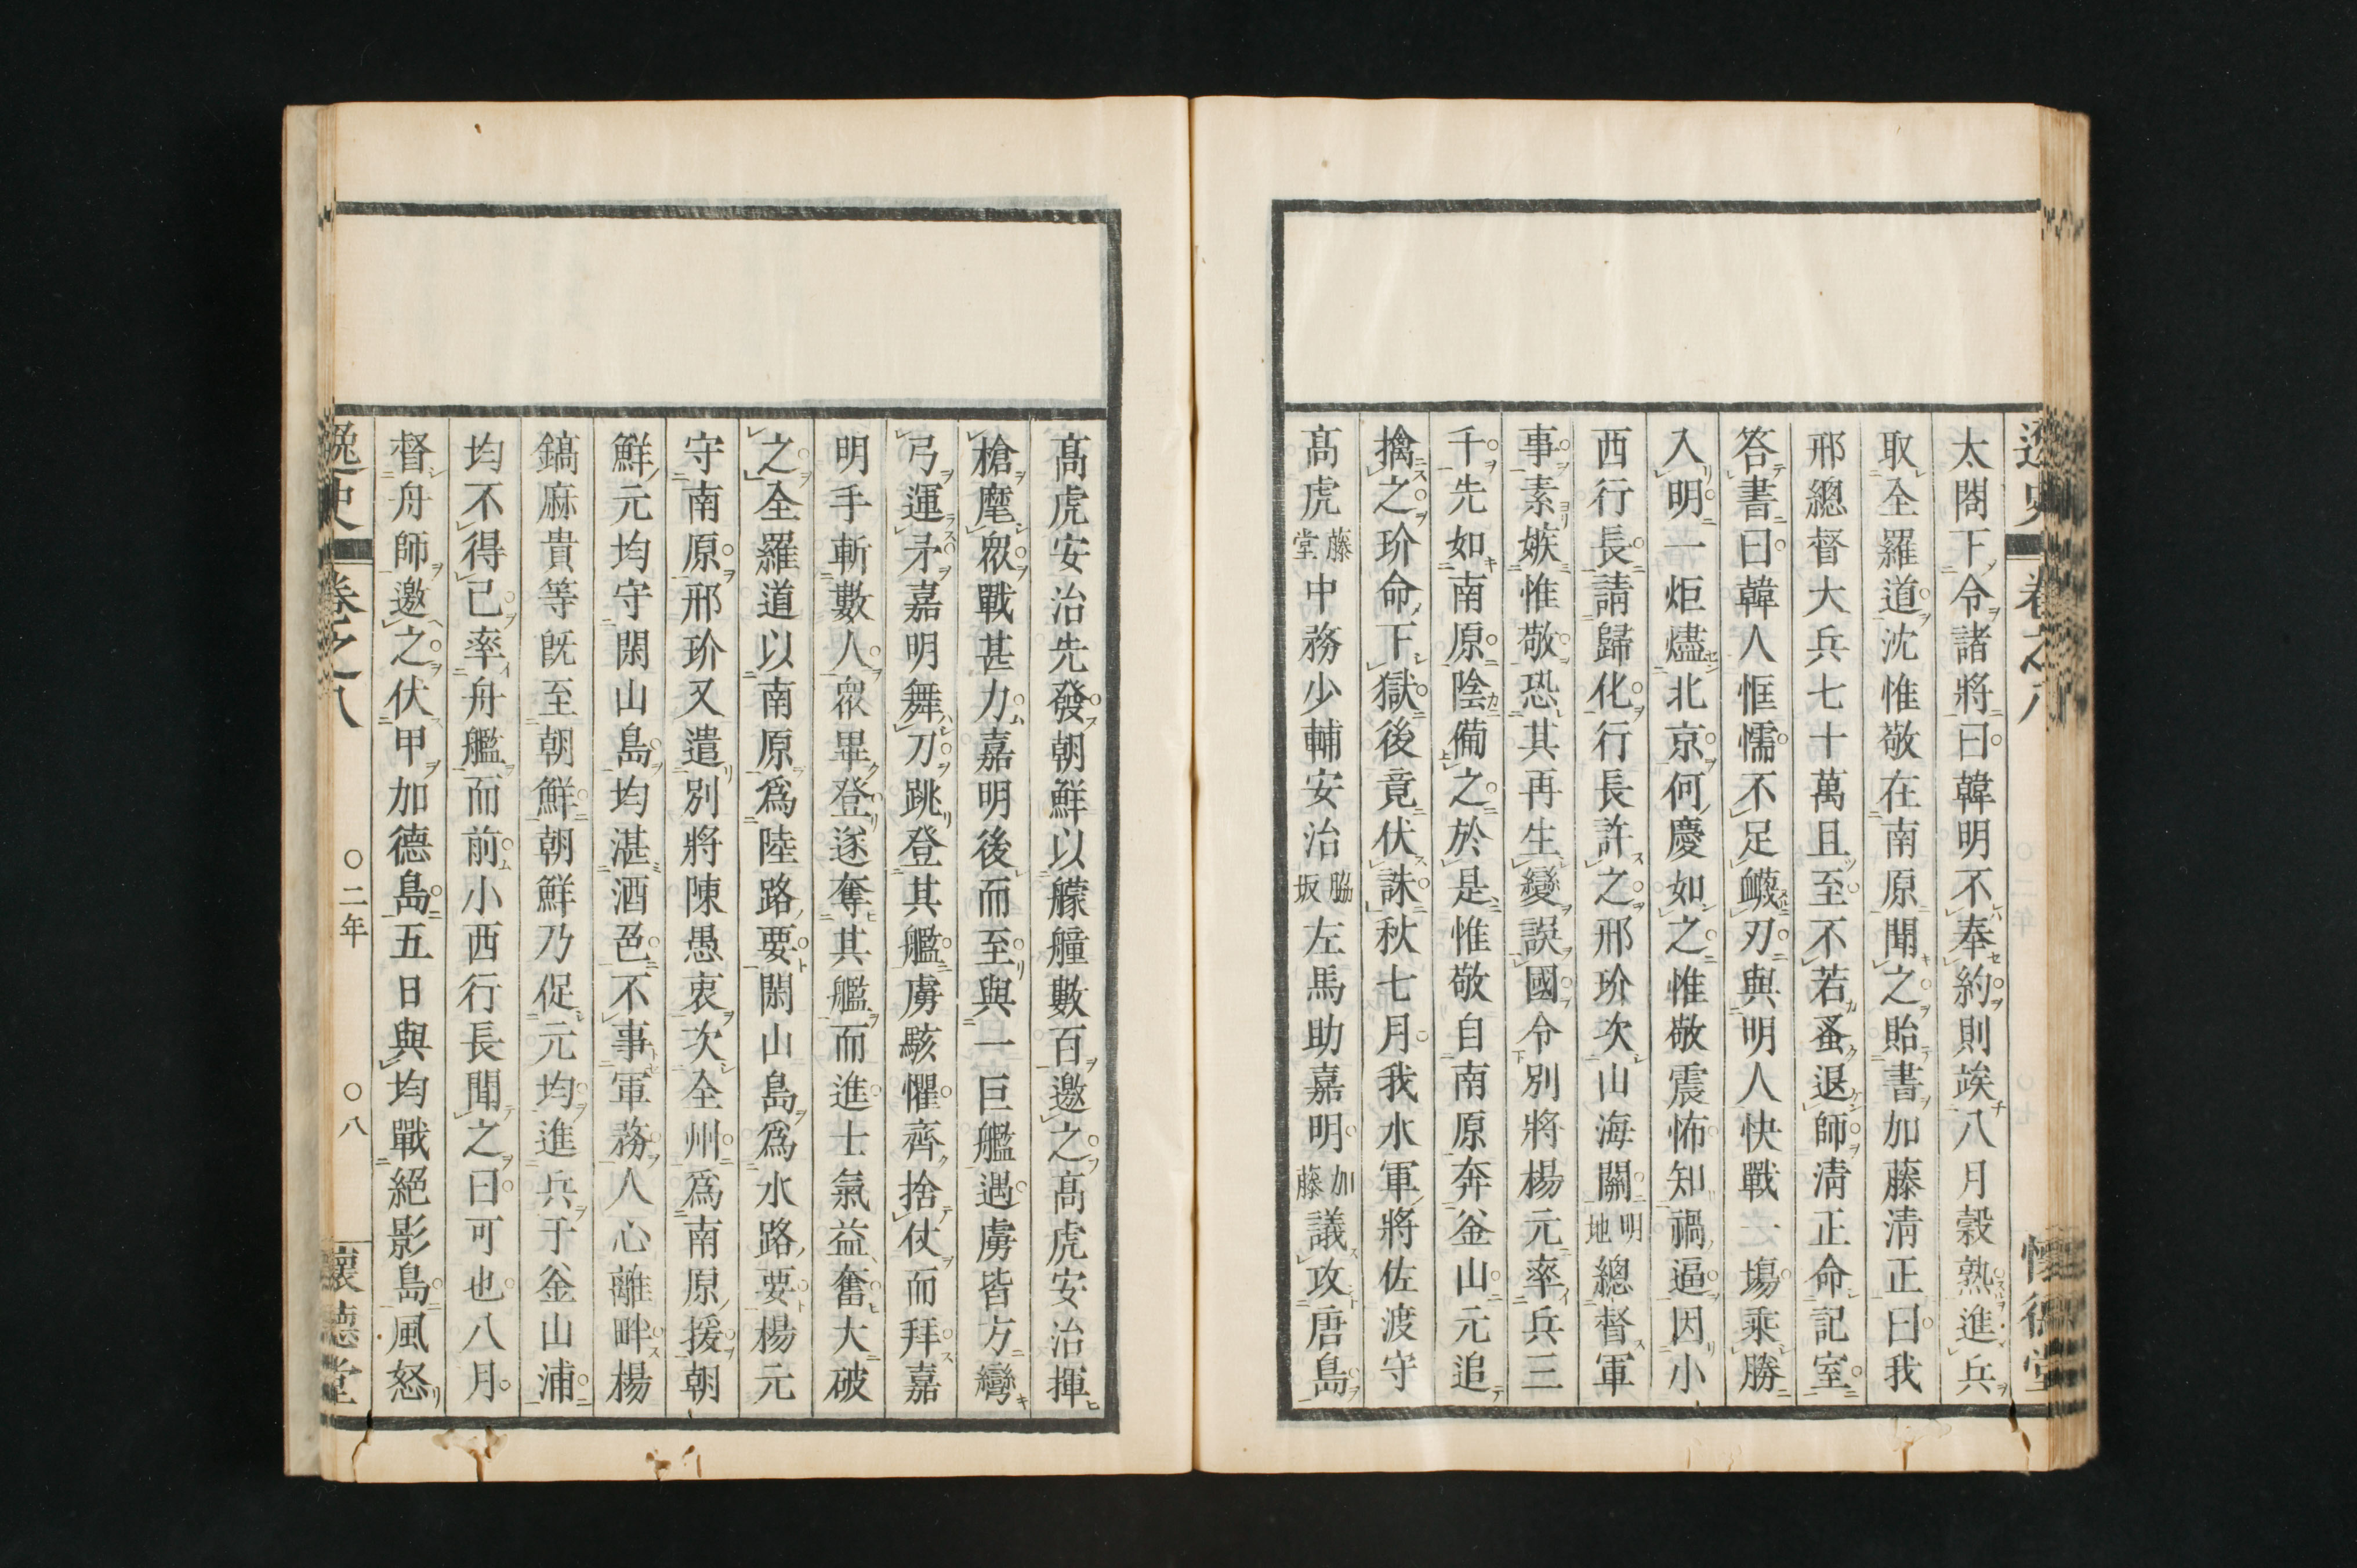 太閤下令諸將曰韓明不奉約則竢八月穀熟進兵
取全羅道沈惟敬在南原聞之貽書加藤淸正曰我
邢總督大兵七十萬且至不若蚤退師淸正命記室
答書曰韓人恇懦不足衊刃與明人快戰一塲乘勝
入明一炬燼北京何慶如之惟敬震怖知禍逼因小
西行長請歸化行長許之邢玠次山海關明地總督軍
事素嫉惟敬恐其再生變誤國令別將楊元率兵三
千先如南原陰備之於是惟敬自南原奔釜山元追
擒之玠命下獄後竟伏誅秋七月我水軍將佐渡守
髙虎藤堂中務少輔安治脇坂左馬助嘉明加藤議攻唐島
髙虎安治先發朝鮮以艨艟數百邀之髙虎安治揮
槍麾衆戰甚力嘉明後而至與一巨艦遇虜皆方彎
弓運矛嘉明舞刀跳登其艦虜駭懼齊捨仗而拜嘉
明手斬數人衆畢登遂奪其艦而進士氣益奮大破
之全羅道以南原爲陸路要閑山島爲水路要楊元
守南原邢玠又遣別將陳愚衷次全州爲南原援朝
鮮元均守閑山島均湛酒色不事軍務人心離畔楊
鎬麻貴等旣至朝鮮朝鮮乃促元均進兵于釜山浦
均不得已率舟艦而前小西行長聞之曰可也八月
督舟師邀之伏甲加德島五日與均戰絕影島風怒
逸史 卷之八 〇二年 〇八 懷德堂